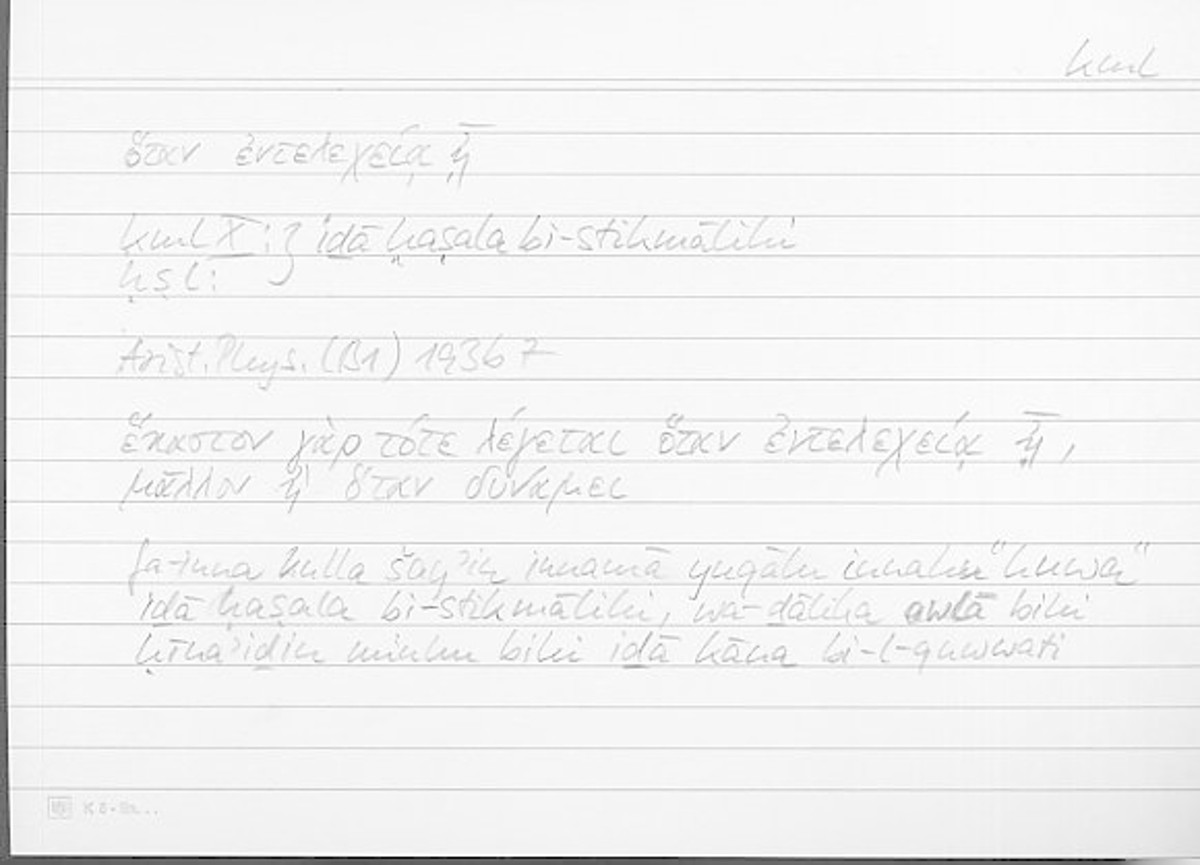 kml
ὅταν ἐντελεχείᾳ ᾖ
kml X: } iḏā ḥaṣala bi-stikmālihī
ḥṣl:
Arist. Phys. (B1) 193b7
ἕκαστον γὰρ τότε λέγεται ὅταν ἐντελεχείᾳ ᾖ,
μᾶλλον ἢ ὅταν δυνάμει
fa-inna kulla šayʾin innamā yuqālu innahū "huwa"
iḏā ḥaṣala bi-stikmālihī, wa-ḏālika awlā bihī
ḥīnaʾiḏin minhu bihī iḏā kāna bi-l-quwwati